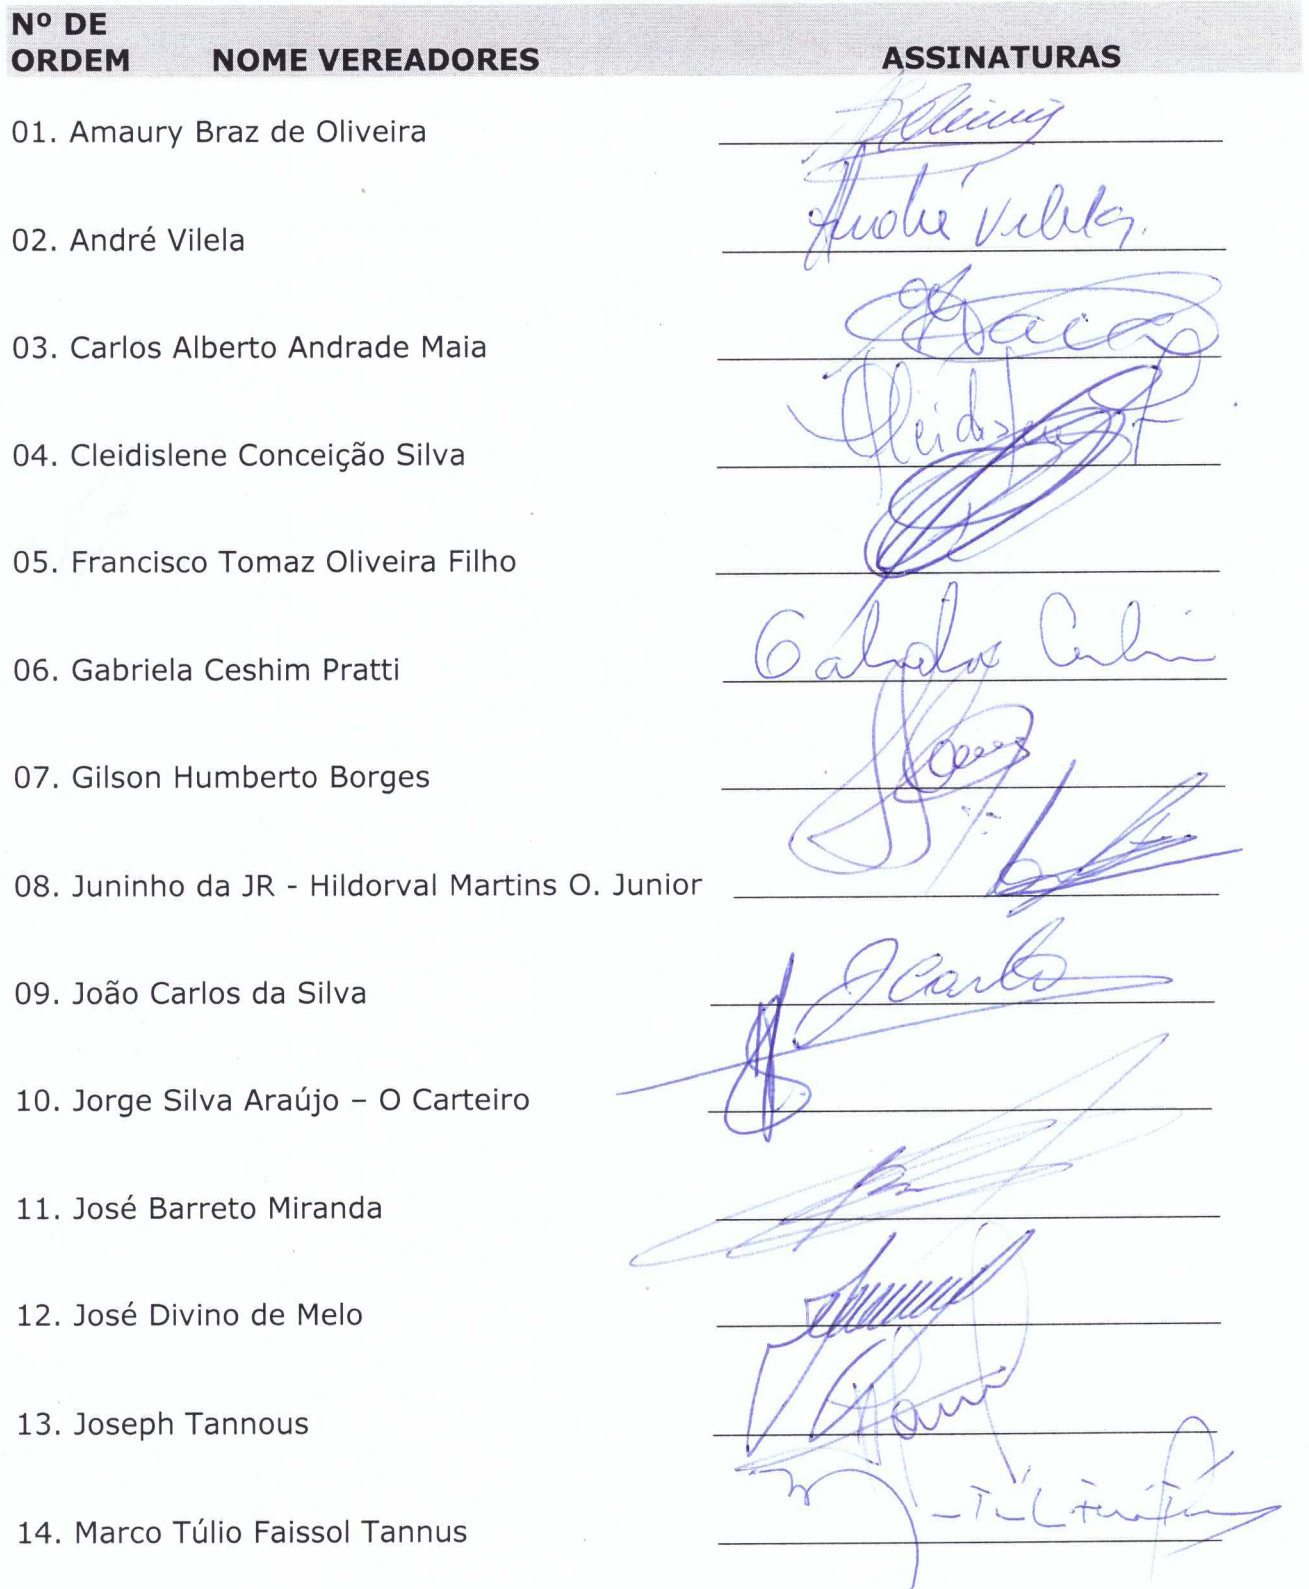 Nº DE
ORDEM NOME VEREADORES ASSINATURAS
01. Amaury Braz de Oliveira
02. André Vilela André Vilela
03. Carlos Alberto Andrade Maia
04. Cleidislene Conceição Silva
05. Francisco Tomaz Oliveira Filho
06. Gabriela Ceshim Pratti Gabriela
07. Gilson Humberto Borges
08. Juninho da JR - Hildorval Martins O. Junior
09. João Carlos da Silva J Carlos
10. Jorge Silva Araújo – O Carteiro
11. José Barreto Miranda
12. José Divino de Melo
13. Joseph Tannous
14. Marco Túlio Faissol Tannus